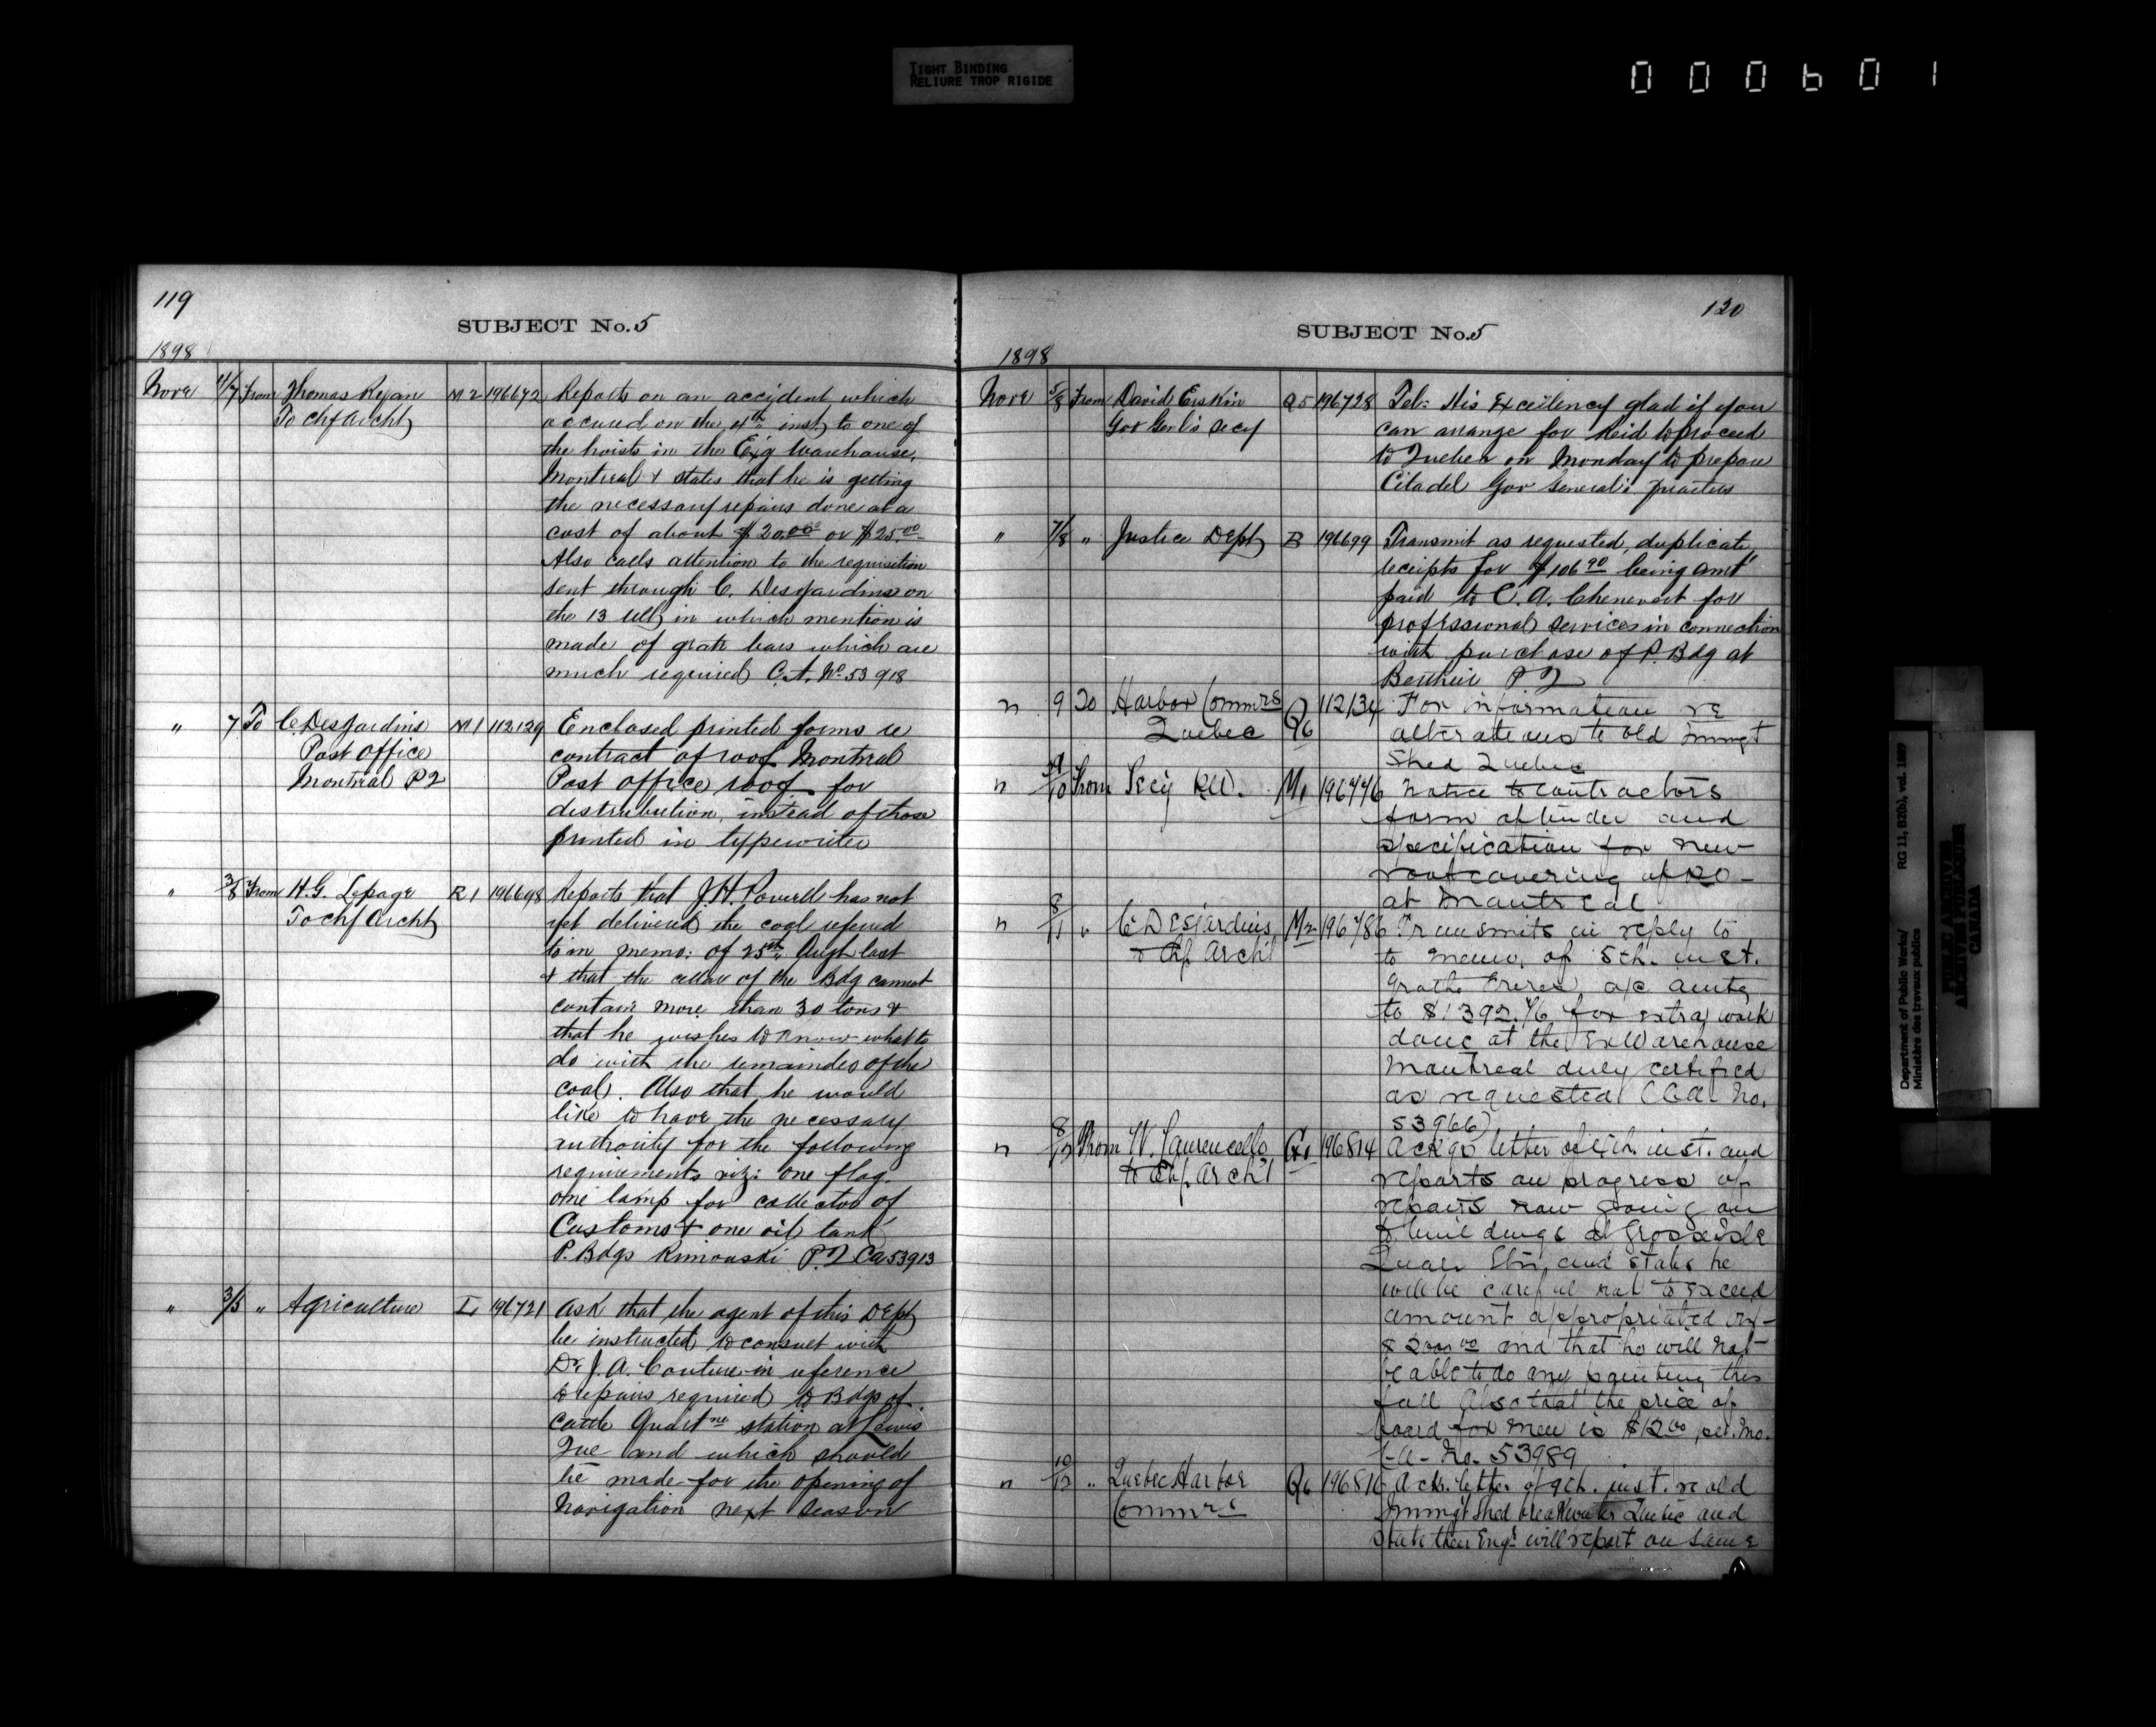 TIGHT BINDING
RELIURE TROP RIGIDE
000601
119
SUBJECT No. 5
1898
Novr 4/7 From Thomas Ryan M2 196672 Reports on an accident which
To Chf Archt occured on the 4th inst to one of
the hoists in the Exg Warehouse,
Montreal & states that he is getting
the necessary repairs done at a
cost of about $20.00 or $25.00
Also calls attention to the requisition
sent through C. Desjardins on
the 13 ult in which mention is
made of grate bars which are
much required C.A. No 53918
" 7 To C. Desjardins M1 112129 Enclosed printed forms re
Post Office contract of roof Montreal
Montreal P2 Post office roof for
distribution, instead of those
printed in typewriter
" 3/8 From H.G. Lepage R1 196698 Reports that J.H. Powell has not
To Chf Archt yet delivered the coal referred
to in memo: of 25th Augt last
& that the cellar of the Bdg cannot
contain more than 30 tons &
that he wishes to know what to
do with the remainder of the
coal. Also that he would
like to have the necessary
authority for the following
requirements viz: one flag.
one lamp for collector of
Customs & one oil tank
P. Bdgs Rimouski P.2 Ca 53913
" 3/5 " Agriculture L 196721 Ask that the agent of this Dept
be instructed to consult with
Dr. J.A. Couture in reference
to repairs required to Bdgs of
Cattle Quartne station at Levis
Que and which should
be made for the opening of
Navigation next season
120
SUBJECT No. 5
1898
Novr 5/8 From David Erskin Q5 196728 Tel: His Excellency glad if you
Gov Genl's Secy can arrange for Reid to proceed
to Quebec on Monday to prepare
Citadel Gov General's quarters
" 7/8 " Justice Dept B 196699 Transmit as requested, duplicate
receipts for $106 90 being amt
paid to C.A. Chenevert for
professional services in connection
with purchase of P. Bdg at
Berthier P2
" 9 To Harbor Commrs Q6 112134 For information re
Quebec alterations to old Immgt
Shed Quebec
" /10 From Secy P.W. M1 196776 Notice to contractors
form of tender and
specification for new
roof covering of P.O-
at Montreal
" 8/11 " C. Desjardins M2 196786 Transmits in reply to
to Chf Archt to memo, of 5th. inst.
Grothe Freres a/c amtg
to $1392.76 for extra work
done at the Ex Warehouse
Montreal duly certified
as requested (C.A. No.
53966)
" 8/12 From W. Laurencelle G1 196814 Ackgs letter of 4th. inst. and
to Chf. Archt reports on progress of
repairs now going on
to buildings at Grosse Isle
Quar Stn, and states he
will be careful not to exceed
amount appropriated viz-
$2000 00 and that he will not
be able to do any painting this
fall Also that the price of
board for men is $12 00 per. mo.
C.A- No. 53989
" 10/12 " Quebec Harbor Q6 196816 Ack. letter of 9th. inst. re old
Commrs Immgt Shed breakwater Quebec and
state their Engr will report on same
Department of Public Works/ RG 11, B2(b), vol. 1889
Ministère des travaux publics
PUBLIC ARCHIVES
ARCHIVES PUBLIQUES
CANADA